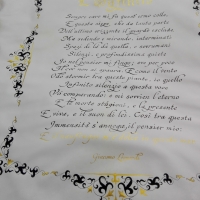 Sempre caro mi fu quest'ermo colle,
E questa siepe, che da tanta parte
Dell'ultimo orizzonte il guardo esclude.
Ma sedendo e mirando, interminati
Spazi di là da quella, e sovrumani
Silenzi, e profondissima quiete
Io nel pensier mi fingo; ove per poco
Il cor non si spaura. E come il vento
Odo stormir tra queste piante, io quello
Infinito silenzio a questa voce
Vo comparando: e mi sovvien l'eterno
E le morte stagioni, e la presente
E viva, e il suon di lei. Così tra questa
Immensità s'annega il pensier mio: